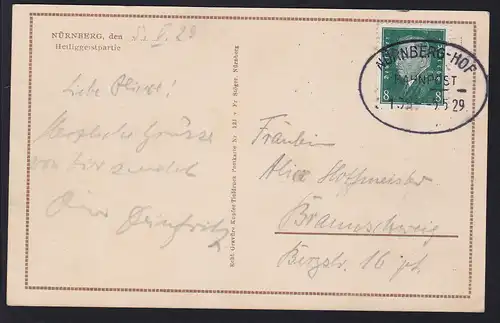 NÜRNBERG, den
Heiliggeistpartie
Herzliche Grüsse
von hier sendet
Echt Gravüre Kupfer-Tiefdruck Postkarte Nr. 121 v. Fr. Bolger, Nürnberg
NÜRNBERG-HOF
BAHNPOST
29
8 8
Fräulein
Alice Hoffmeister
Braunschweig
Bergstr. 16 pt.